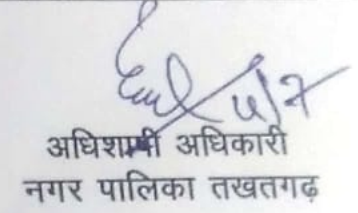 4/7
अधिशाषी अधिकारी
नगर पालिका तखतगढ़